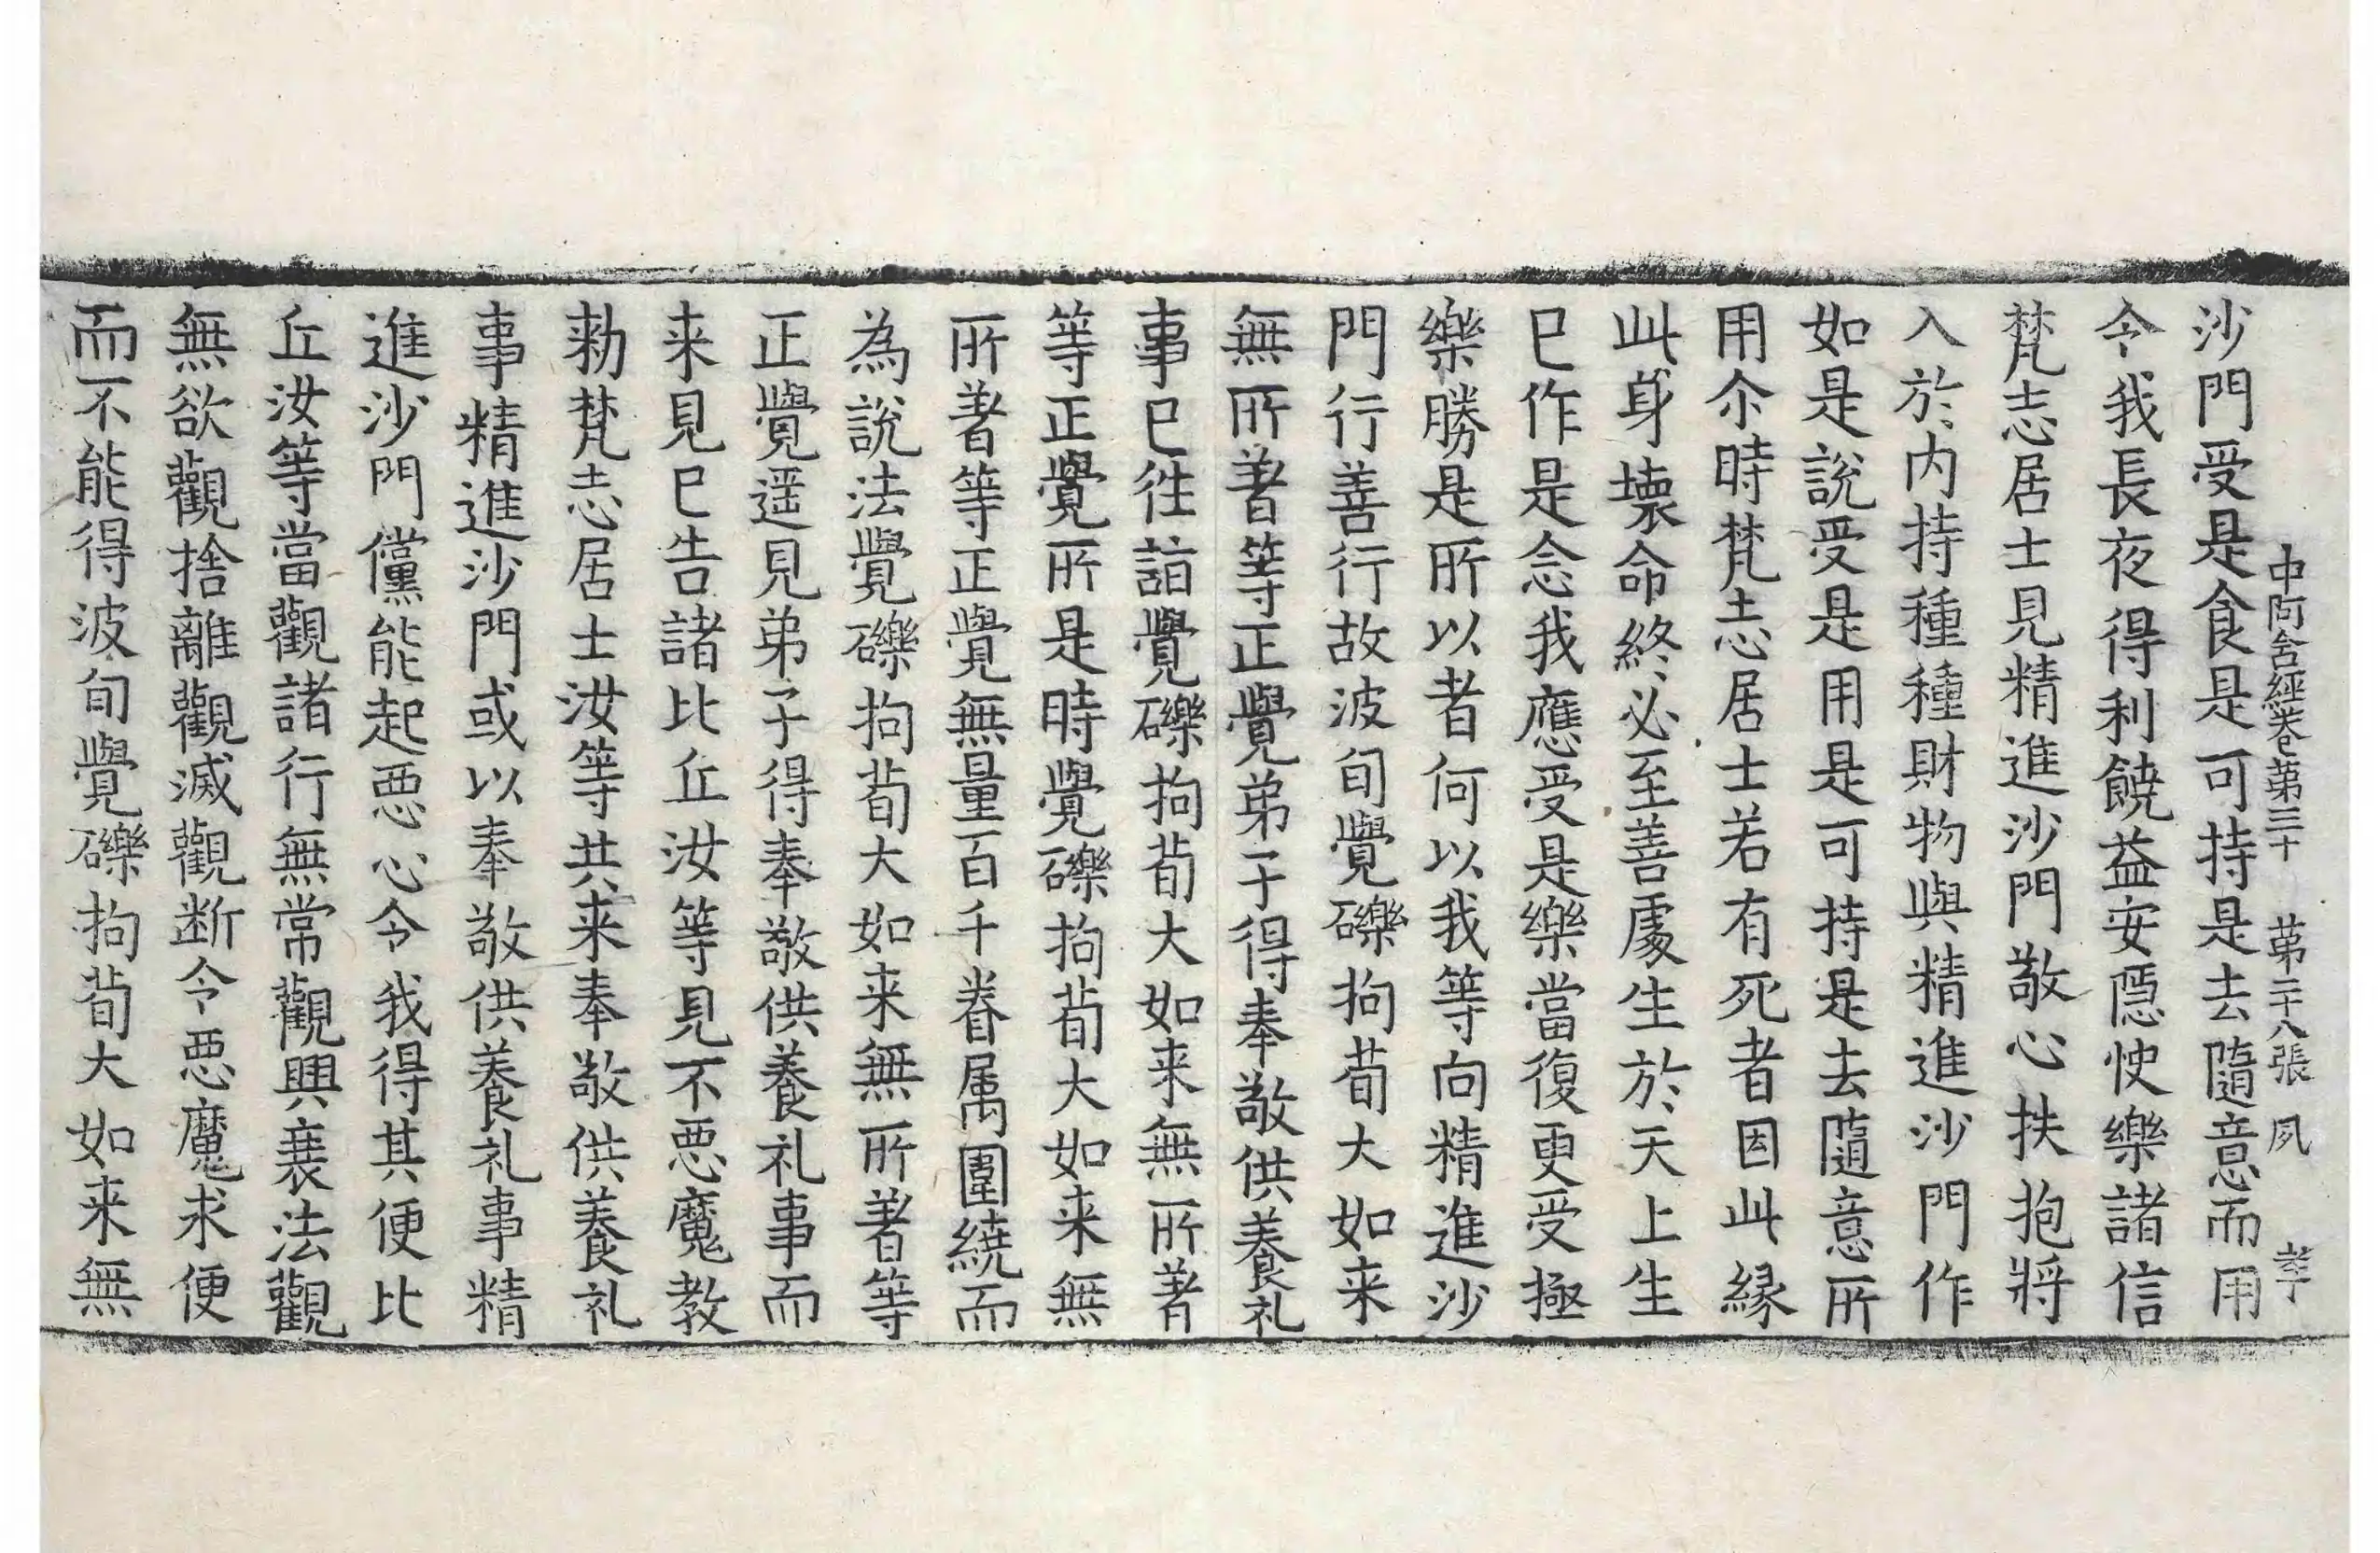 中阿含經卷第三十　第二十八張　夙
沙門受是食是可持是去隨意而用
令我長夜得利饒益安隱快樂諸信
梵志居士見精進沙門敬心扶抱將
入於內持種種財物與精進沙門作
如是說受是用是可持是去隨意所
用尒時梵志居士若有死者因此緣
此身壞命終必至善處生於天上生
已作是念我應受是樂當復更受極
樂勝是所以者何以我等向精進沙
門行善行故波旬覺礫拘荀大如来
無所著等正覺弟子得奉敬供養礼
事已往詣覺礫拘荀大如来無所著
等正覺所是時覺礫拘荀大如来無
所著等正覺無量百千眷属圍繞而
為說法覺礫拘荀大如来無所著等
正覺遥見弟子得奉敬供養礼事而
来見已告諸比丘汝等見不惡魔教
勑梵志居士汝等共来奉敬供養礼
事精進沙門或以奉敬供養礼事精
進沙門儻能起惡心令我得其便比
丘汝等當觀諸行無常觀興衰法觀
無欲觀捨離觀滅觀断令惡魔求便
而不能得波旬覺礫拘荀大如来無